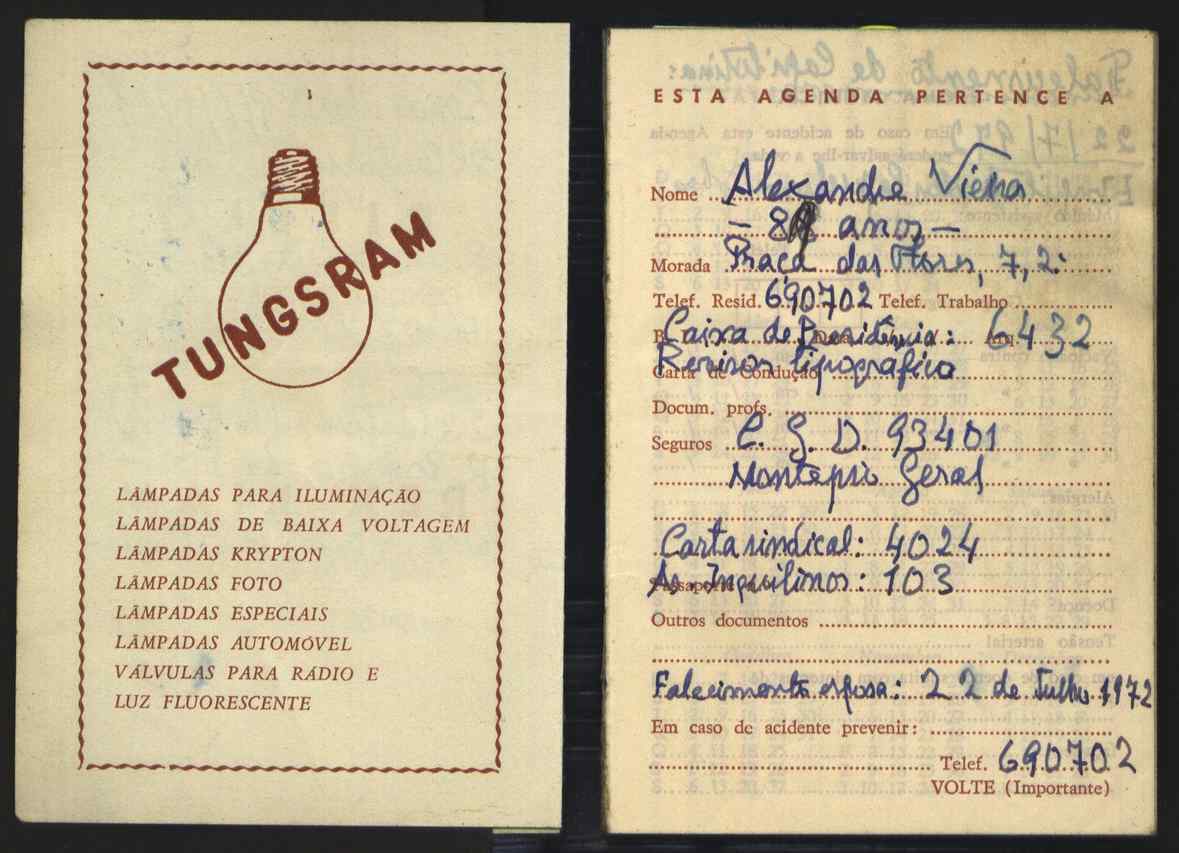 TUNGSRAM
LÂMPADAS PARA ILUMINAÇÃO
LÂMPADAS DE BAIXA VOLTAGEM
LÂMPADAS KRYPTON
LÂMPADAS FOTO
LÂMPADAS ESPECIAIS
LÂMPADAS AUTOMÓVEL
VÁLVULAS PARA RÁDIO E
LUZ FLUORESCENTE
ESTA AGENDA PERTENCE A
Nome Alexandre Vieira
anos
Morada Praça das Flores, 7, 2.º
Telef. Resid. 690702 Telef. Trabalho
Caixa de Previdência: 6432
Revisor tipográfico
Carta de Condução
Docum. profs.
Seguros C. G. D. 93401
Montepio Geral
Carta sindical: 4024
As. Inquilinos: 103
Passaporte
Outros documentos
Falecimento esposa: 22 de Julho 1972
Em caso de acidente prevenir:
Telef. 690702
VOLTE (Importante)